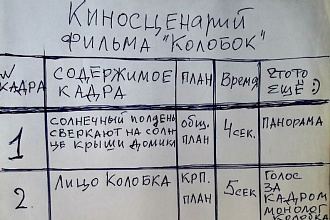 Киносценарий
фильма "Колобок"
№ КАДРА СОДЕРЖИМОЕ КАДРА ПЛАН Время ЕЩЁ :)
1 СОЛНЕЧНЫЙ ПОЛДЕНЬ СВЕРКАЮТ НА СОЛНЦЕ КРЫШИ ДОМИК общ. план 4 сек. ПАНОРАМА
2. ЛИЦО КОЛОБКА КРП. ПЛАН 5 сек Голос ЗА КАДРОМ МОНОЛОГ КОЛОБКА